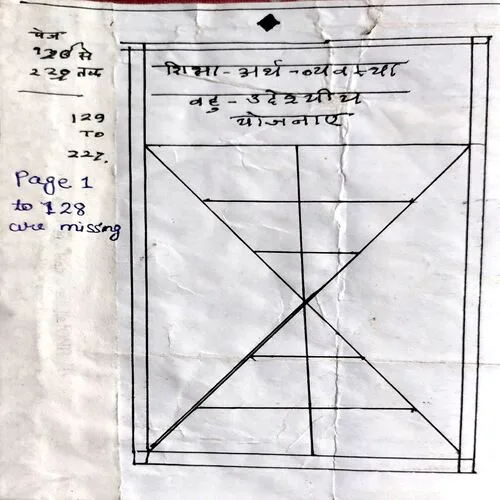 पेज
128 से
229 तक
129
TO
227.
Page 1
to 128
are missing
शिक्षा - अर्थ - व्यवस्था
बहु - उद्देश्यीय
योजनाएँ